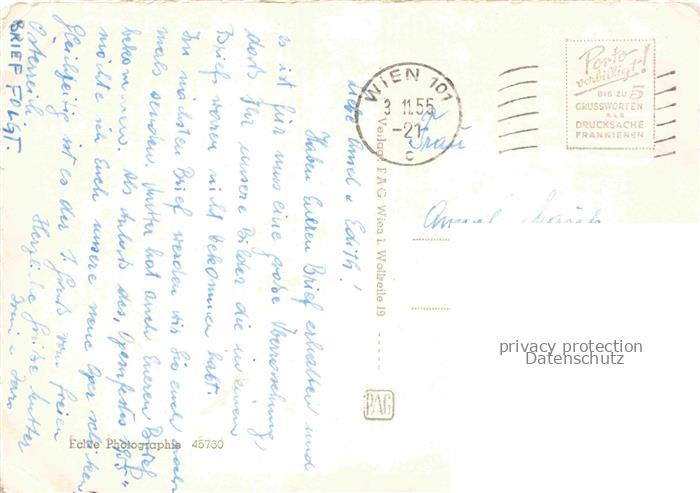 Liebe Annel u Edith!
Haben Eueren Brief erhalten und
es ist für uns eine große Überraschung,
dass Ihr unsere Bilder die in einem
Brief waren nicht bekommen habt.
Im nächsten Brief werden wir Sie euch noch-
mals senden. Mutter hat auch Eueren Brief
bekommen. Als Anlass des „Opernfestes 1955“
möchte ich Euch unsere neue Oper schicken
Gleichzeitig ist es der 1. Gruß vom freien
Österreich. Herzliche Grüße Mutter
BRIEF FOLGT.
WIEN 101
3 11.55
-21
c
Porto
verbilligt!
BIS ZU 5
GRUSSWORTEN
ALS
DRUCKSACHE
FRANKIEREN
Frau
Verlag: PAG Wien 1. Wollzeile 19
PAG
Echte Photographie 45760
privacy protection
Datenschutz